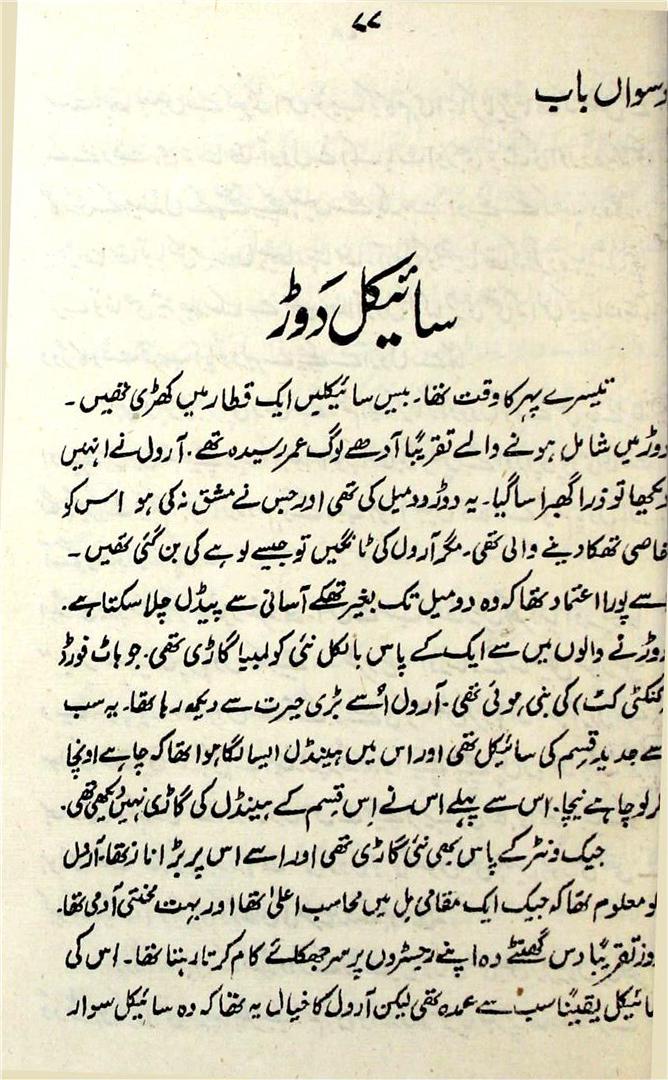 ۷۷
دسواں باب
سائیکل دَوڑ
تیسرے پہر کا وقت تھا۔ بیس سائیکلیں ایک قطار میں کھڑی تھیں۔
دوڑ میں شامل ہونے والے تقریباً آدھے لوگ عمر رسیدہ تھے۔ آرول نے انہیں
دیکھا تو ذرا گھبرا سا گیا۔ یہ دوڑ دو میل کی تھی اور جس نے مشق نہ کی ہو اس کو
خاصی تھکا دینے والی تھی۔ مگر آرول کی ٹانگیں تو جیسے لوہے کی بن گئی تھیں۔
اسے پورا اعتماد تھا کہ وہ دو میل تک بغیر تھکے آسانی سے پیڈل چلا سکتا ہے۔
دوڑنے والوں میں سے ایک کے پاس بالکل نئی کولمبیا گاڑی تھی۔ جو ہاٹ فورڈ
کنکٹی کٹ) کی بنی ہوئی تھی۔ آرول اُسے بڑی حیرت سے دیکھ رہا تھا۔ یہ سب
سے جدید قِسم کی سائیکل تھی اور اس میں ہینڈل ایسا لگا ہوا تھا کہ چاہے اونچا
کر لو چاہے نیچا۔ اس سے پہلے اس نے اِس قِسم کے ہینڈل کی گاڑی نہیں دیکھی تھی۔
جیک ونٹر کے پاس بھی نئی گاڑی تھی اور اسے اس پر بڑا ناز تھا۔ آرول
کو معلوم تھا کہ جیک ایک مقامی مل میں محاسب اعلیٰ تھا اور بہت محنتی آدمی تھا۔
روز تقریباً دس گھنٹے وہ اپنے رجسٹروں پر سر جھکائے کام کرتا رہتا تھا۔ اس کی
سائیکل یقیناً سب سے عمدہ تھی لیکن آرول کا خیال یہ تھا کہ وہ سائیکل سوار